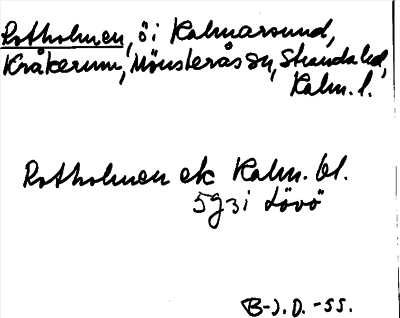 Rotholmen, ö i Kalmarsund,
Kråkerum, Mönsterås sn, Stranda hd,
Kalm. l.
Rotholmen ek Kalm. bl.
5g3i Lövö
B-J. D. -55.